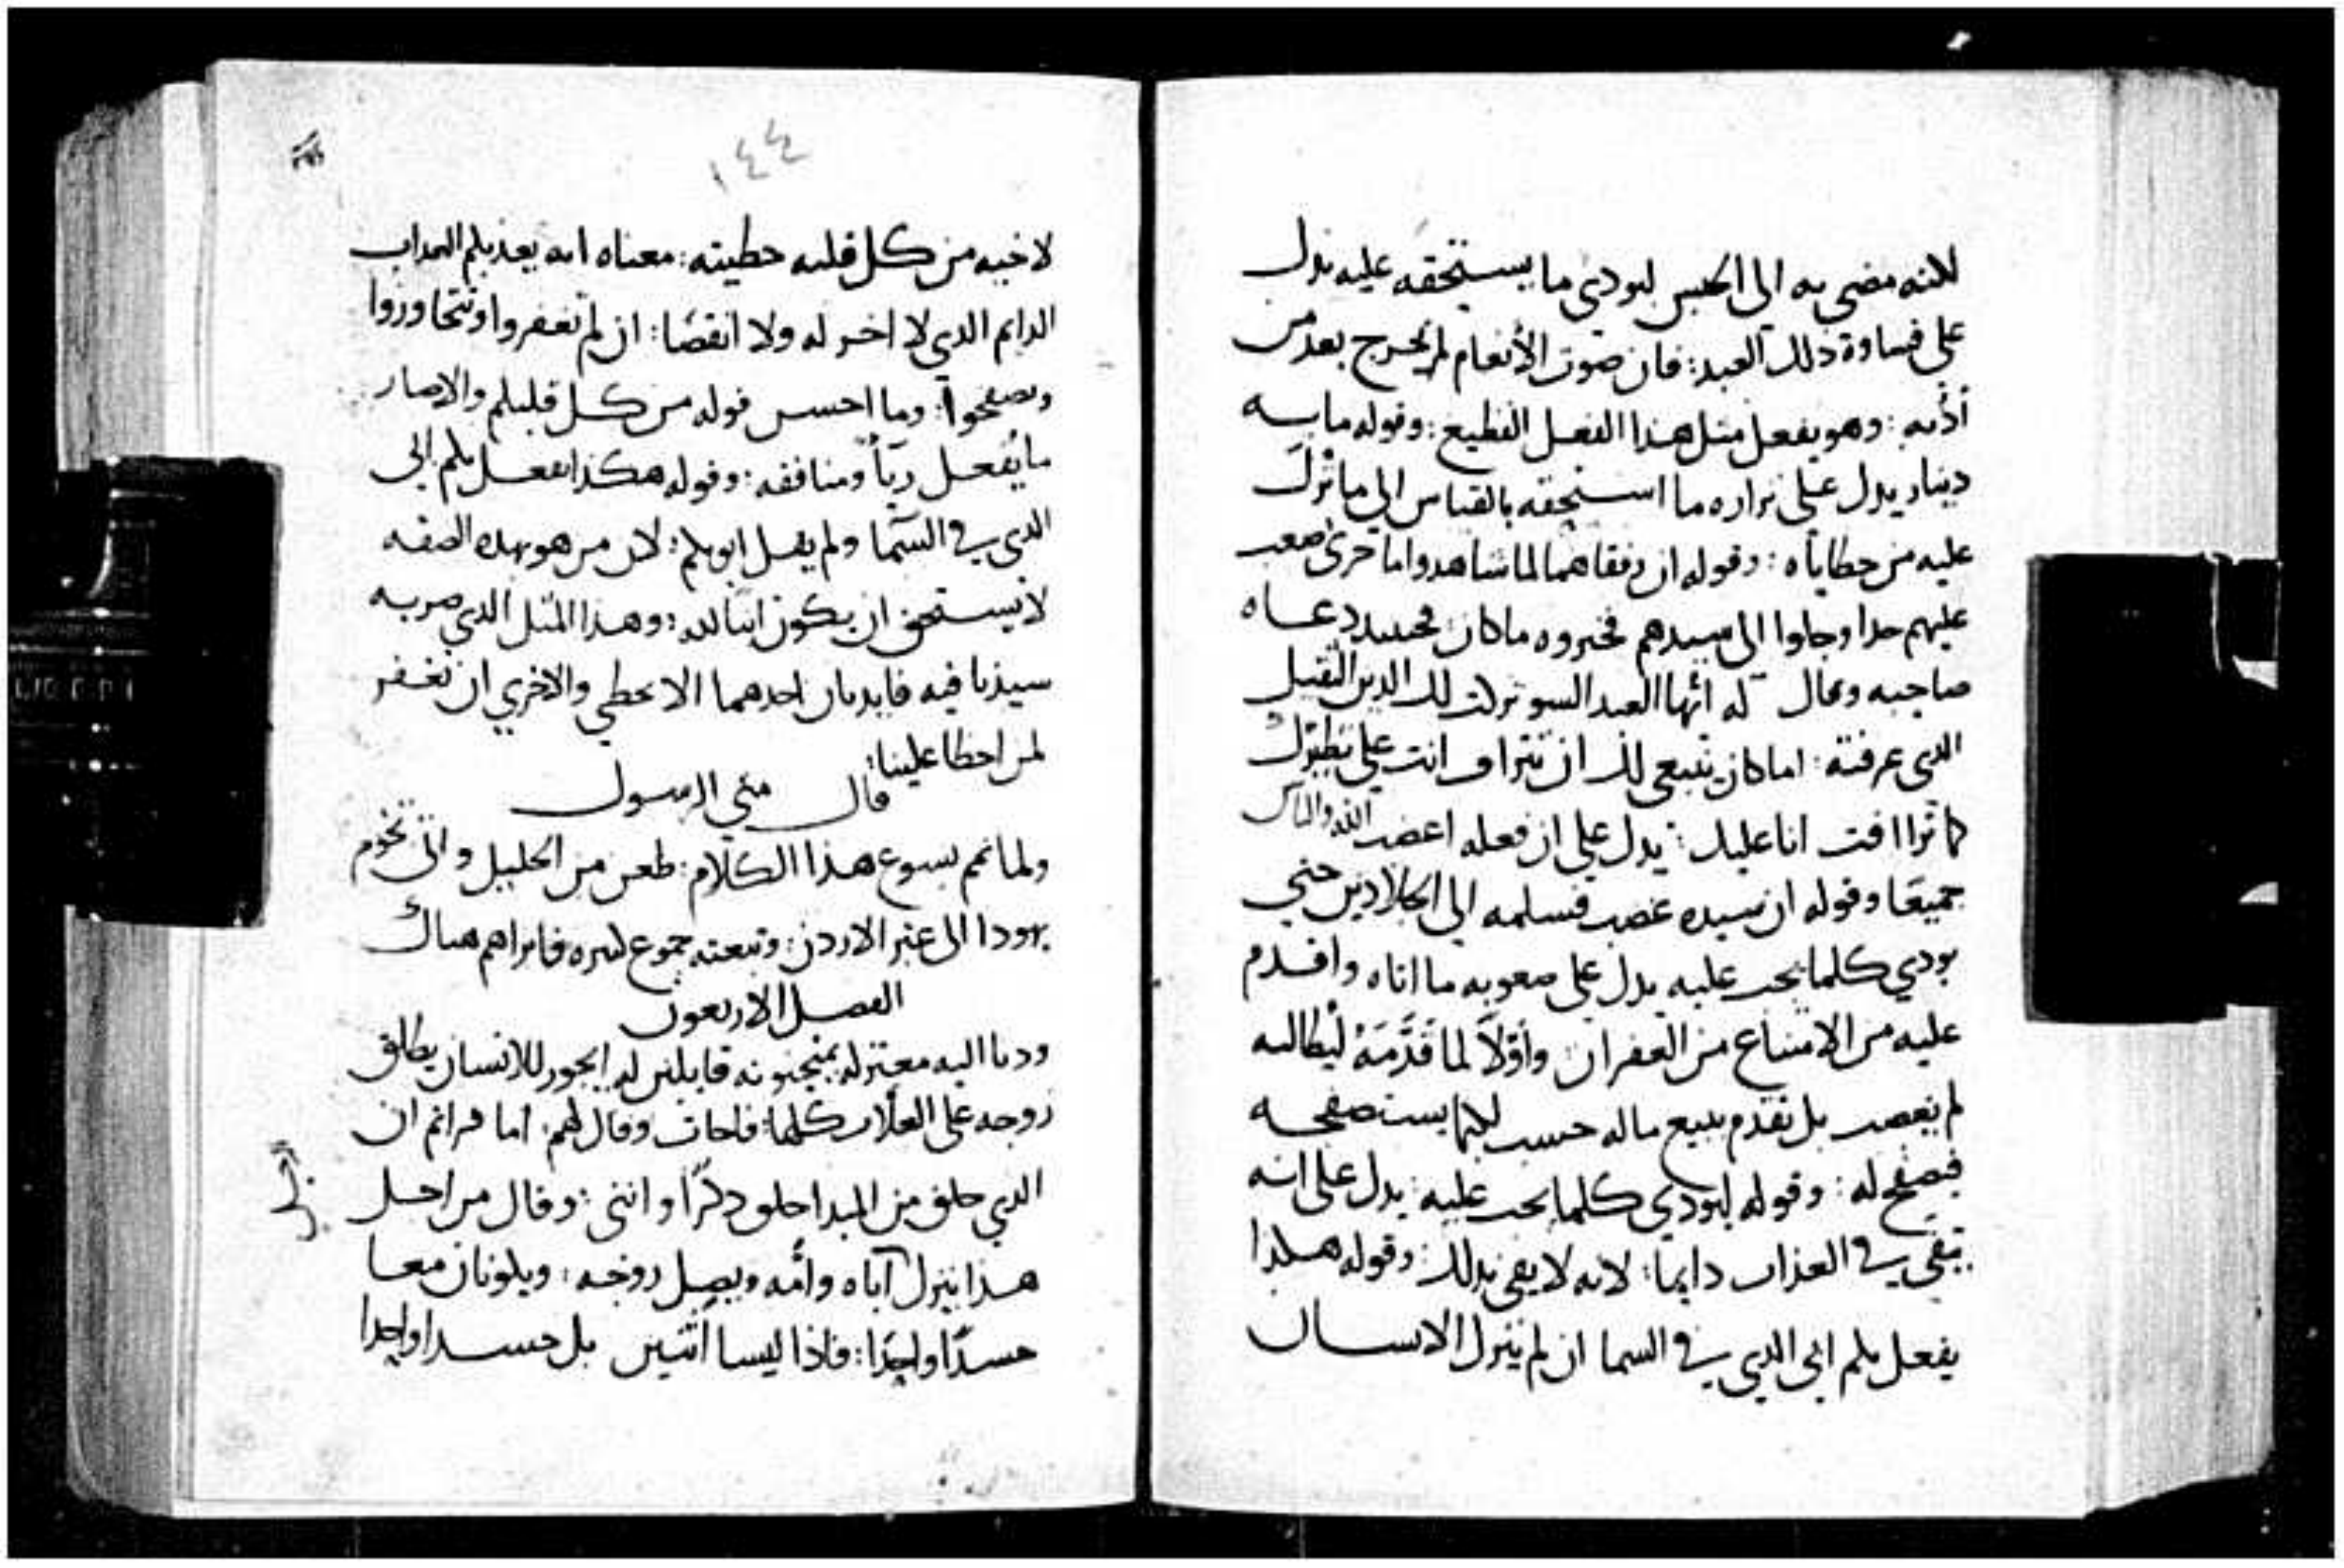 لانه مضى به الى الحبس ليودي ما يستحقه عليه يدل
على قساوة ذلك العبد: فان صوت الأنعام لم يخرج بعد من
أذنه: وهو يفعل مثل هذا الفعل الفظيع: وقوله مايه
دينار يدل على نزاره ما استحقه بالقياس الى ما ترك
عليه من خطاياه: وقوله ان رفقاهما لما شاهدوا ما جرى صعب
عليهم جدا وجاوا الى سيدهم فخبروه ما كان: فحينيد دعاه
صاحبه وقال له أيها العبد السو تركت لك الدين الثقيل
الدى عرفته: اما كان ينبغي لك ان تتراف انت على نظيرك
كما تراافت انا عليك: يدل على ان فعله اغضب الله والناس
جميعا وقوله ان سيده غضب فسلمه الى الجلادين حتي
يودي كلما يجب عليه يدل على صعوبه ما اتاه واقدم
عليه من الامتناع من الغفران وأولاً لما قدَّمَهُ ليطالبه
لم يغضب بل تقدم ببيع ماله حسب ليما يستصفحه
فيصفح له: وقوله ليودي كلما يجب عليه: يدل على انه
يبقى في العذاب دايما: لانه لا يفي بدلك: وقوله هكدا
يفعل بكم ابى الدي في السما ان لم يترك الانسان
١٤٤
لاخيه من كل قلبه خطيته: معناه انه يعذبكم العداب
الدايم الدي لا اخر له ولا انقضا: ان لم تغفروا وتتجاوزوا
وتصفحوا: وما احسن قوله من كل قلبكم والا صار
ما يُفعل ريآً ومنافقه: وقوله هكذا يفعل بكم ابى
الدى في السما ولم يقل ابوكم: لان من هو بهده الصفه
لا يستحق ان يكون ابنا لله: وهذا المثل الدي ضربه
سيدنا فيه فايدتان احدهما الا نخطي والاخري ان نغفر
لمن اخطا علينا:
قال متي الرسول
ولما تمم يسوع هذا الكلام: ظعن من الجليل واتى تخوم
يهودا الى عبر الاردن: وتبعته جموع كثيره فابراهم هناك
الفصل الاربعون
ودنا اليه معتزله يمتحنونه قايلين له ايجوز للانسان يطلق
زوجه على العلات كلها: فاجاب وقال لهم: اما قراتم ان
الدي خلق من المبدا خلق دكرًا وانثى: وقال من اجل
هذا يترك آباه وأمه ويصل زوجه: ويكونان معا
جسدًا واحِدًا: فاذا ليسا اثنين بل جسدا واحدا